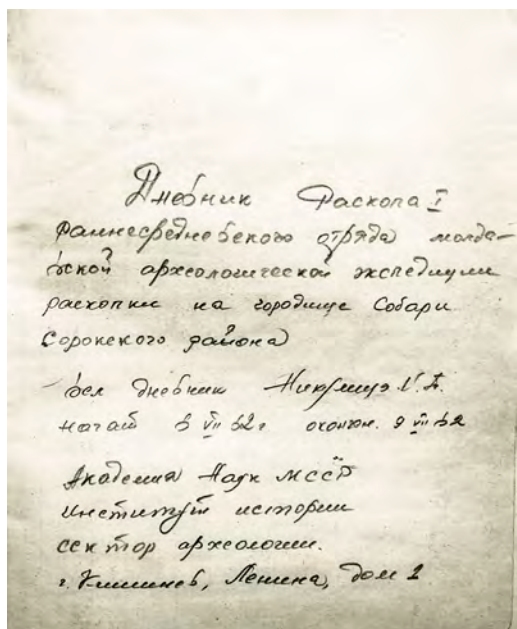 Дневник Раскопа I
раннесредневекого отряда молда-
вской археологической экспедиции
раскопки на городище Собари
Сорокского района
вел дневник Никулицэ И.Т.
начат 6 VII 62 г оконч. 9 VII 62
Академия Наук МССР
Институт истории
сектор археологии.
г. Кишинев, Ленина, дом 1